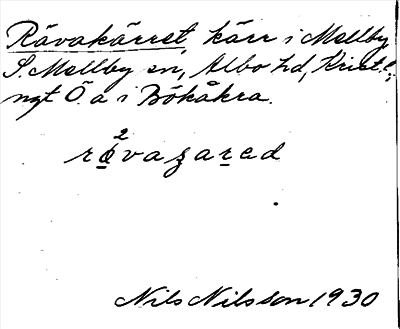 Rävakärret, kärr i Mellby
S. Mellby sn, Albo hd, Krist. l.,
ngt Ö. a i Bökåkra.
2
rävaʒared
Nils Nilsson 1930